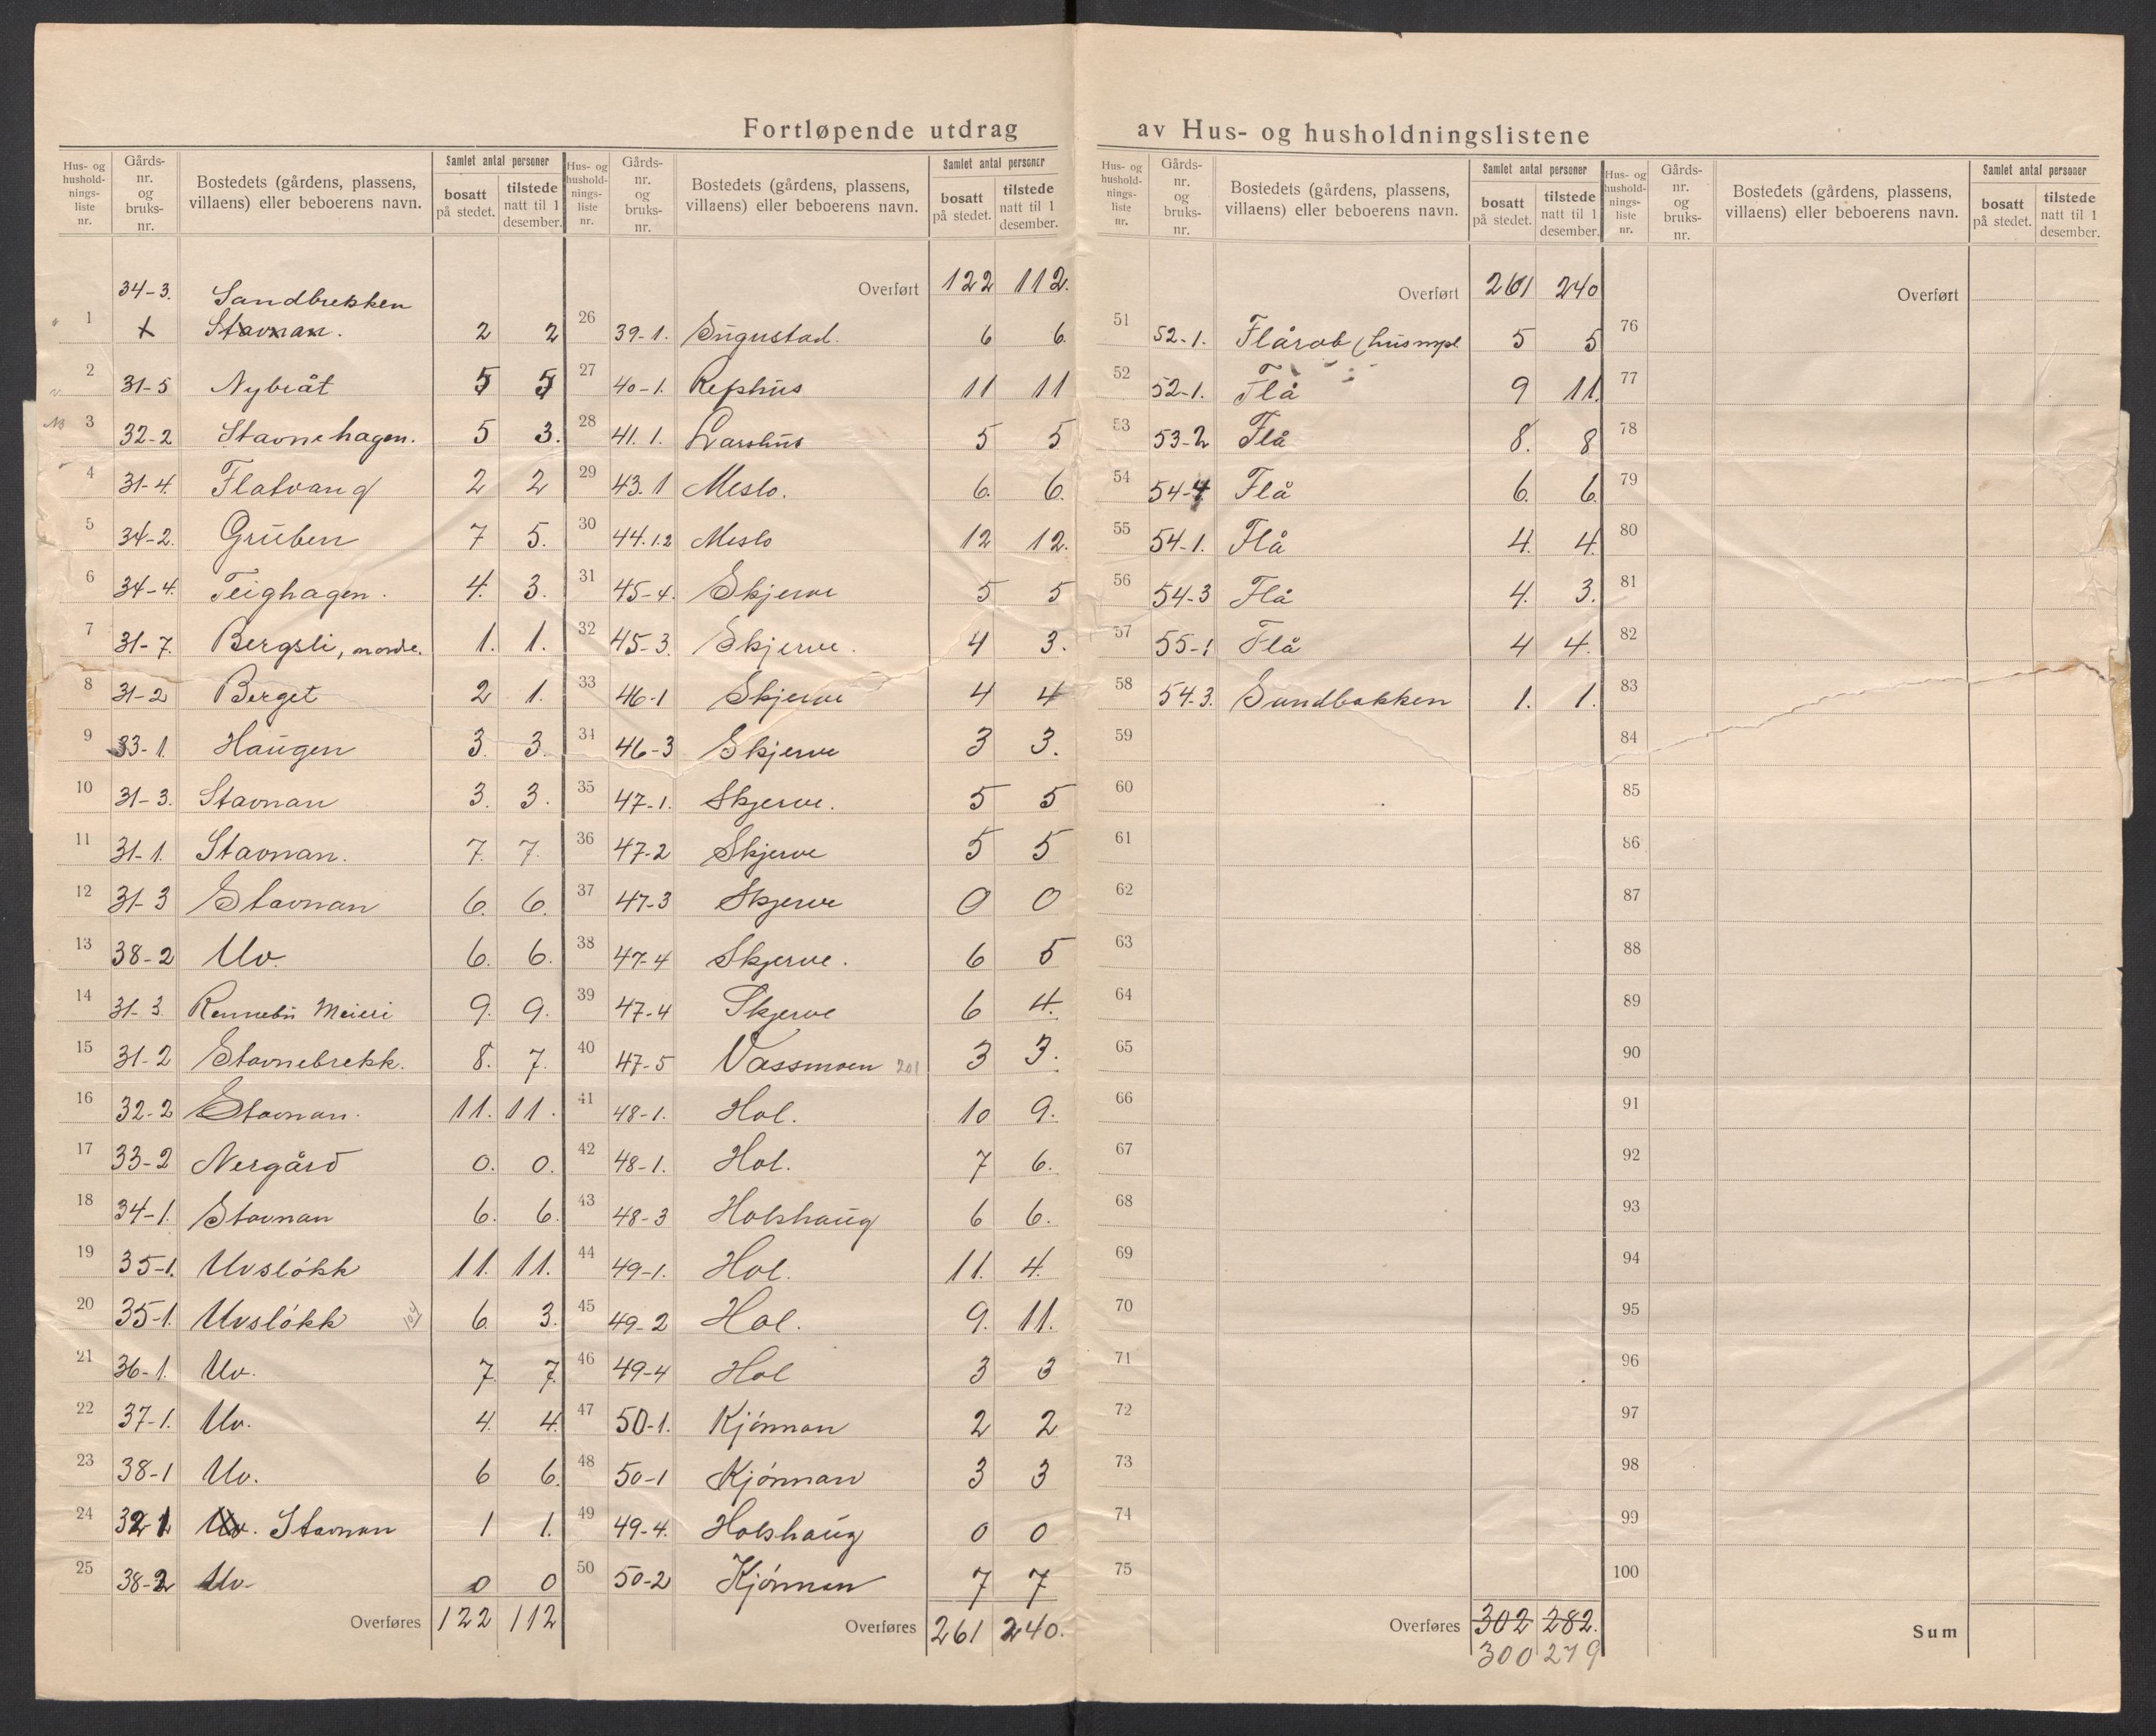 Fortløpende utdrag av Hus- og husholdningslistene
Hus- og husholdningsliste nr. | Gårdsnr. og bruksnr. | Bostedets (gårdens, plassens, villaens) eller beboerens navn. | Samlet antal personer bosatt på stedet. | tilstede natt til 1 desember.
34-3. Sandbrekken
1 + Stavnan. 2 2
2 31-5 Nybråt 5 5
3 32-2 Stavnehagen. 5 3.
4 31-4. Flatvang 2 2
5 34-2. Gruben 7 5.
6 34-4. Teighagen. 4. 3.
7 31-7. Bergsli, nordre. 1. 1.
8 31-2 Berget 2 1.
9 33-1 Haugen 3. 3.
10 31-3. Stavnan 3. 3.
11 31-1. Stavnan. 7. 7.
12 31-3 Stavnan 6. 6.
13 38-2 Uv. 6. 6.
14 31-3 Rennebu Meieri 9. 9.
15 31-2 Stavnebrekk. 8. 7.
16 32-2 Stavnan. 11. 11.
17 33-2 Nergård 0. 0.
18 34-1. Stavnan 6. 6.
19 35-1. Uvsløkk 11. 11.
20 35-1. Uvsløkk 6. 3.
21 36-1. Uv. 7. 7.
22 37-1. Uv. 4. 4.
23 38-1 Uv. 6 6.
24 32 1 Uv. Stavnan 1 1.
25 38-2 Uv 0 0
Overføres 122 112
Hus- og husholdningsliste nr. | Gårdsnr. og bruksnr. | Bostedets (gårdens, plassens, villaens) eller beboerens navn. | Samlet antal personer bosatt på stedet. | tilstede natt til 1 desember.
Overført 122 112.
26 39-1. Sugustad. 6 6.
27 40-1. Rephus 11 11
28 41.1. Larshus 5 5
29 43.1 Meslo. 6. 6.
30 44.1.2 Meslo 12 12.
31 45-4. Skjerve 5 5
32 45-3. Skjerve. 4 3.
33 46-1 Skjerve 4 4
34 46-3 Skjerve 3 3.
35 47-1. Skjerve. 5 5
36 47-2 Skjerve 5 5
37 47-3 Skjerve 0 0
38 47-4 Skjerve. 6 5
39 47-4 Skjerve 6 4.
40 47-5 Vassmoen 201 3 3.
41 48-1. Hol. 10 9.
42 48-1. Hol. 7 6.
43 48-3 Holshaug 6 6.
44 49-1. Hol. 11. 4.
45 49-2 Hol. 9. 11.
46 49-4 Hol 3 3
47 50-1. Kjønnan 2 2
48 50-1 Kjønnan 3 3
49 49-4. Holshaug 0 0
50 50-2 Kjønnan 7 7
Overføres 261 240.
Hus- og husholdningsliste nr. | Gårdsnr. og bruksnr. | Bostedets (gårdens, plassens, villaens) eller beboerens navn. | Samlet antal personer bosatt på stedet. | tilstede natt til 1 desember.
Overført 261 240
51 52-1. (husmpl 5 5
52 52-1. Flå 9 11.
53 53-2 Flå 8. 8
54 54-4 Flå 6. 6.
55 54-1. Flå 4. 4.
56 54-3 Flå 4. 3.
57 55-1 Flå 4 4.
58 54.3. Sandbakken 1. 1.
59
60
61
62
63
64
65
66
67
68
69
70
71
72
73
74
75
Overføres 302 282.
300 279
Hus- og husholdningsliste nr. | Gårdsnr. og bruksnr. | Bostedets (gårdens, plassens, villaens) eller beboerens navn. | Samlet antal personer bosatt på stedet. | tilstede natt til 1 desember.
Overført
76
77
78
79
80
81
82
83
84
85
86
87
88
89
90
91
92
93
94
95
96
97
98
99
100
Sum